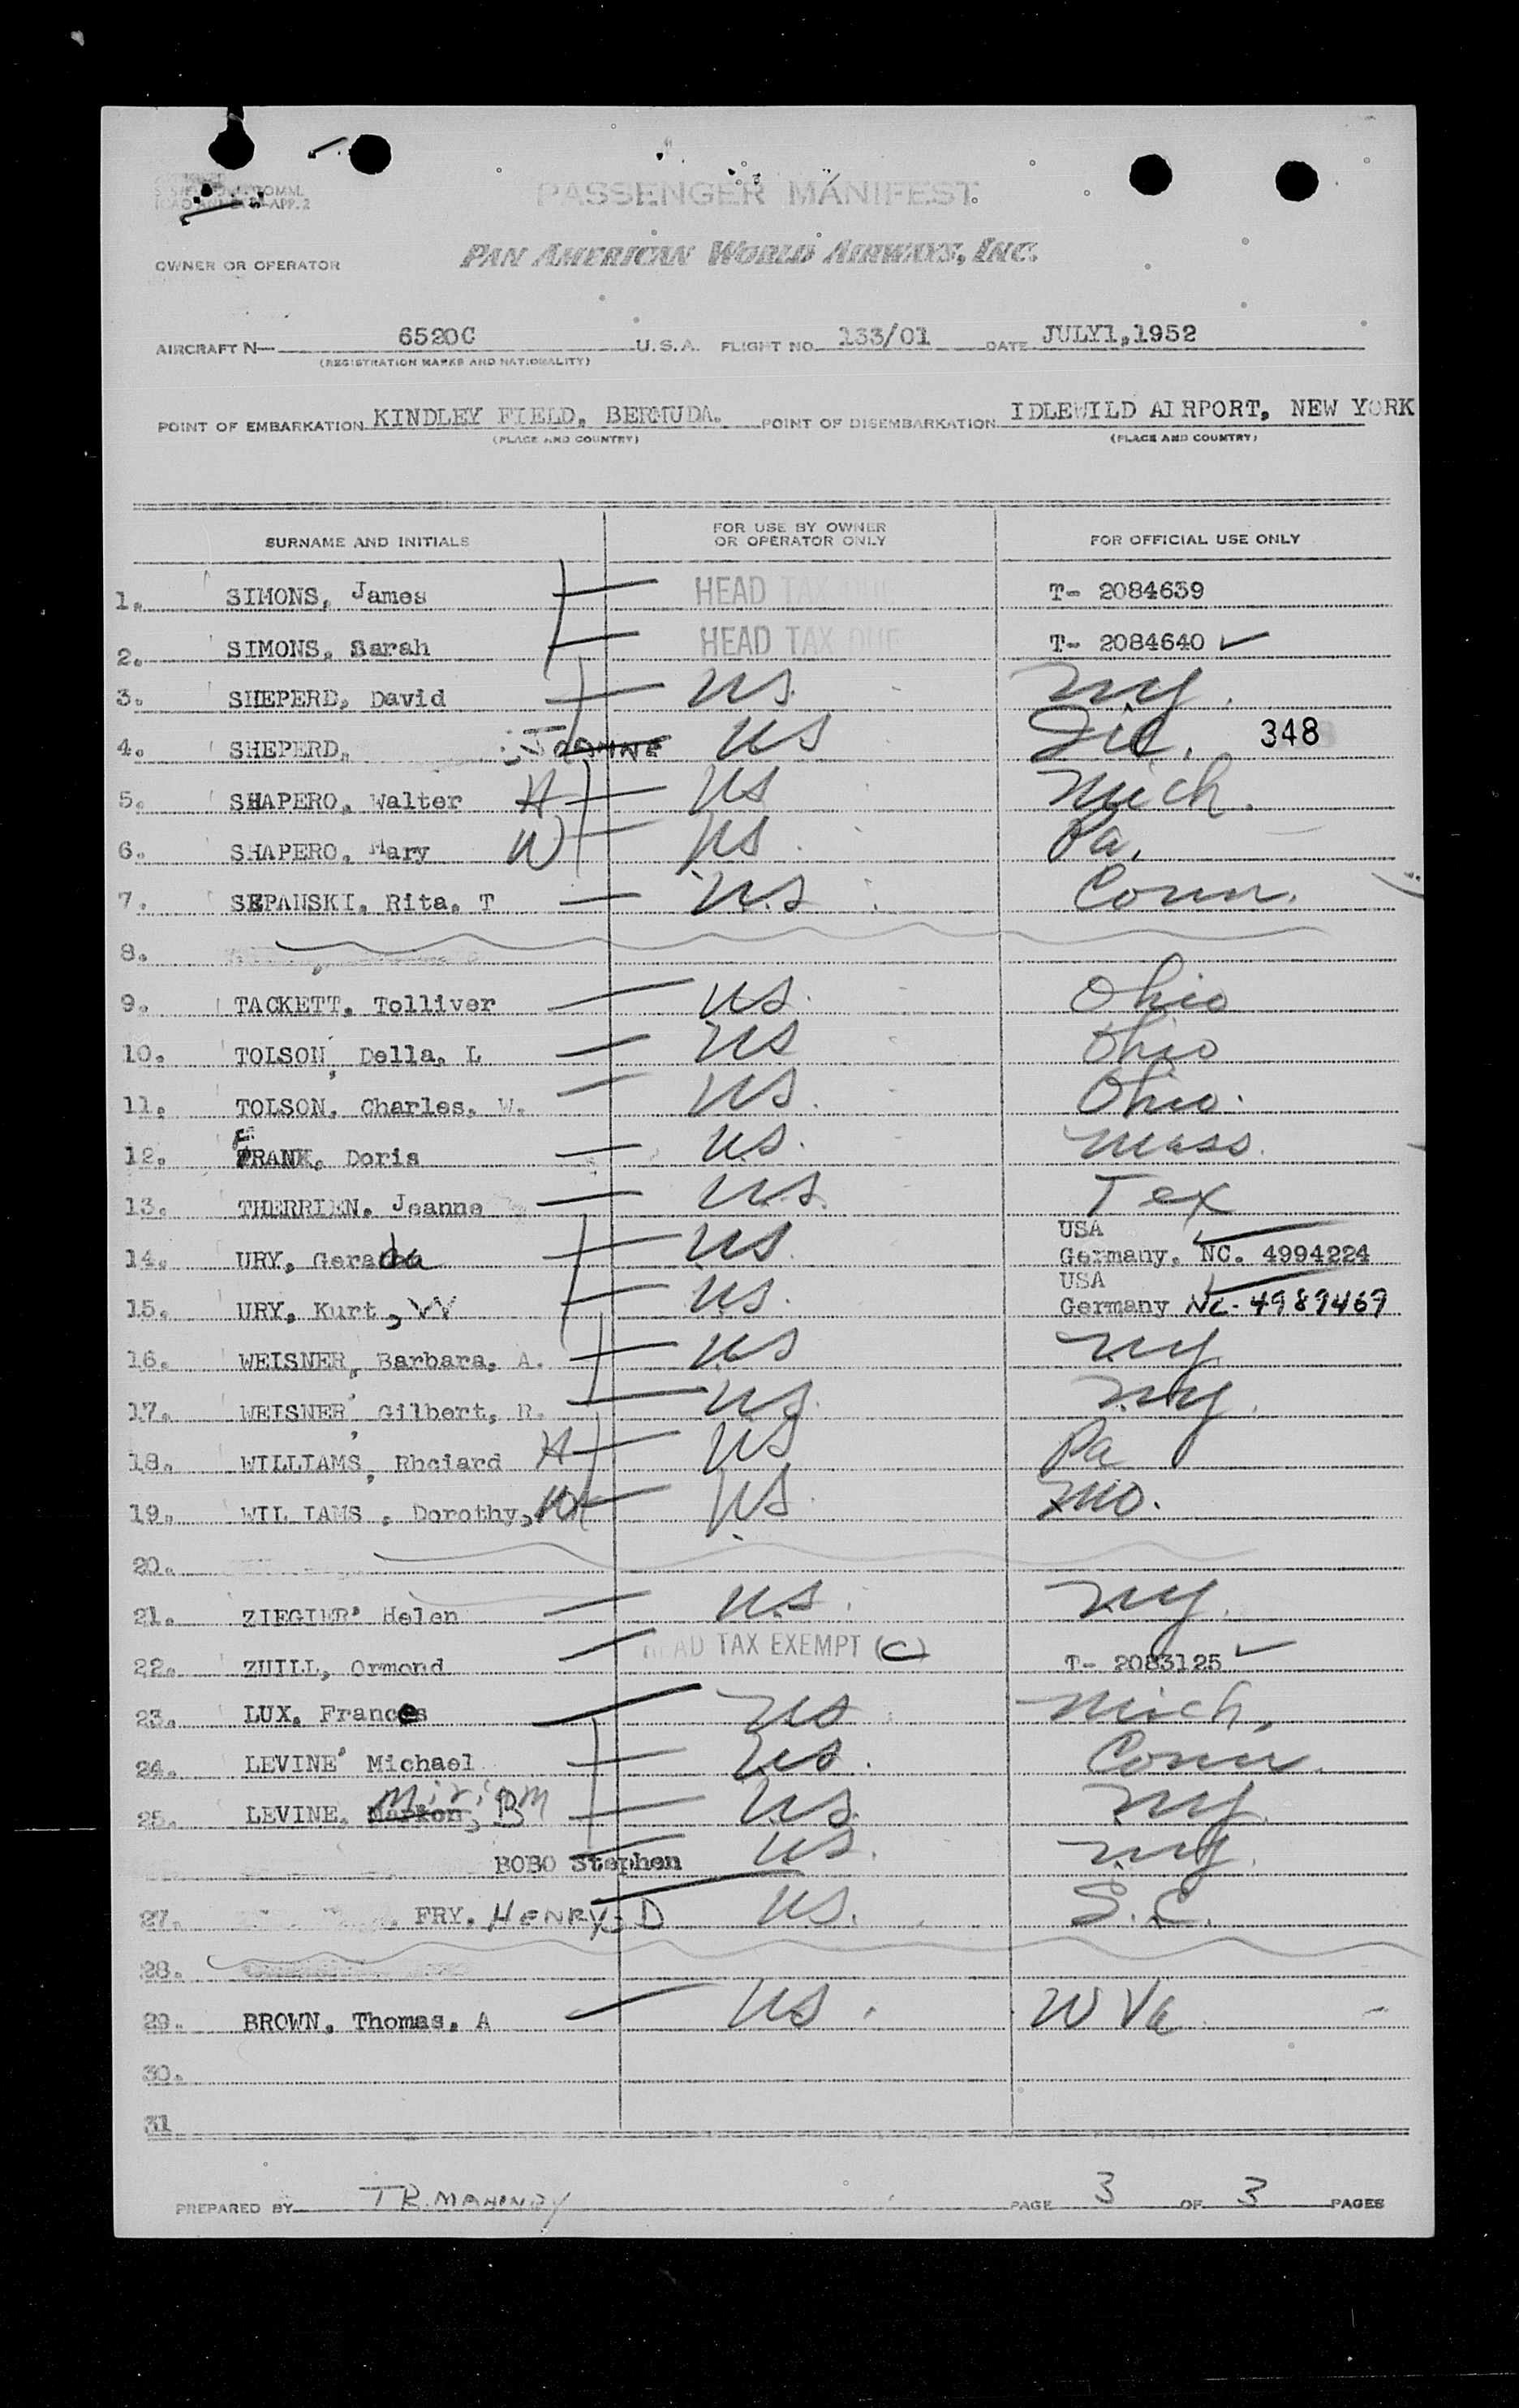 COMM.
APP. 2
PASSENGER MANIFEST
OWNER OR OPERATOR PAN AMERICAN WORLD AIRWAYS, INC.
AIRCRAFT N— 6520C U.S.A. FLIGHT NO. 133/01 DATE JULY1,1952
(REGISTRATION MARKS AND NATIONALITY)
POINT OF EMBARKATION KINDLEY FIELD, BERMUDA. POINT OF DISEMBARKATION IDLEWILD AIRPORT, NEW YORK
(PLACE AND COUNTRY) (PLACE AND COUNTRY)
SURNAME AND INITIALS FOR USE BY OWNER OR OPERATOR ONLY FOR OFFICIAL USE ONLY
1. SIMONS, James HEAD TAX DUE T- 2084639
2. SIMONS, Sarah HEAD TAX DUE T- 2084640 ✓
3. SHEPERD, David US. NY.
4. SHEPERD, JOANNE US 348
5. SHAPERO, Walter H US Mich.
6. SHAPERO, Mary W US. Pa.
7. SEPANSKI, Rita, T U.S Conn.
8.
9. TACKETT, Tolliver US. Ohio
10. TOLSON, Della, L US Ohio
11. TOLSON, Charles, W. US. Ohio.
12. FRANK, Doris U.S. Mass.
13. THERRIEN, Jeanne U.S. Tex
USA
14. URY, Gerada US. Germany, NC. 4994224
USA
15. URY, Kurt, W US. Germany NC- 4989469
16. WEISNER, Barbara, A. US NY
17. WEISNER, Gilbert, R. US. NY.
18. WILLIAMS, Rhciard H US Pa
19. WIL IAMS, Dorothy, W US. Mo.
20.
21. ZIEGLER, Helen U.S. NY.
22. ZUILL, Ormond HEAD TAX EXEMPT (C) T- 2083125 ✓
23. LUX, Frances US Mich.
24. LEVINE, Michael US. Conn.
Miriam
25. LEVINE, Marion, B US. NY.
BOBO Stephen US. NY.
27. FRY, HENRY, D US. S.C.
28.
29. BROWN, Thomas, A US. W Va
30.
31
PREPARED BY T R. MAHONEY PAGE 3 OF 3 PAGES